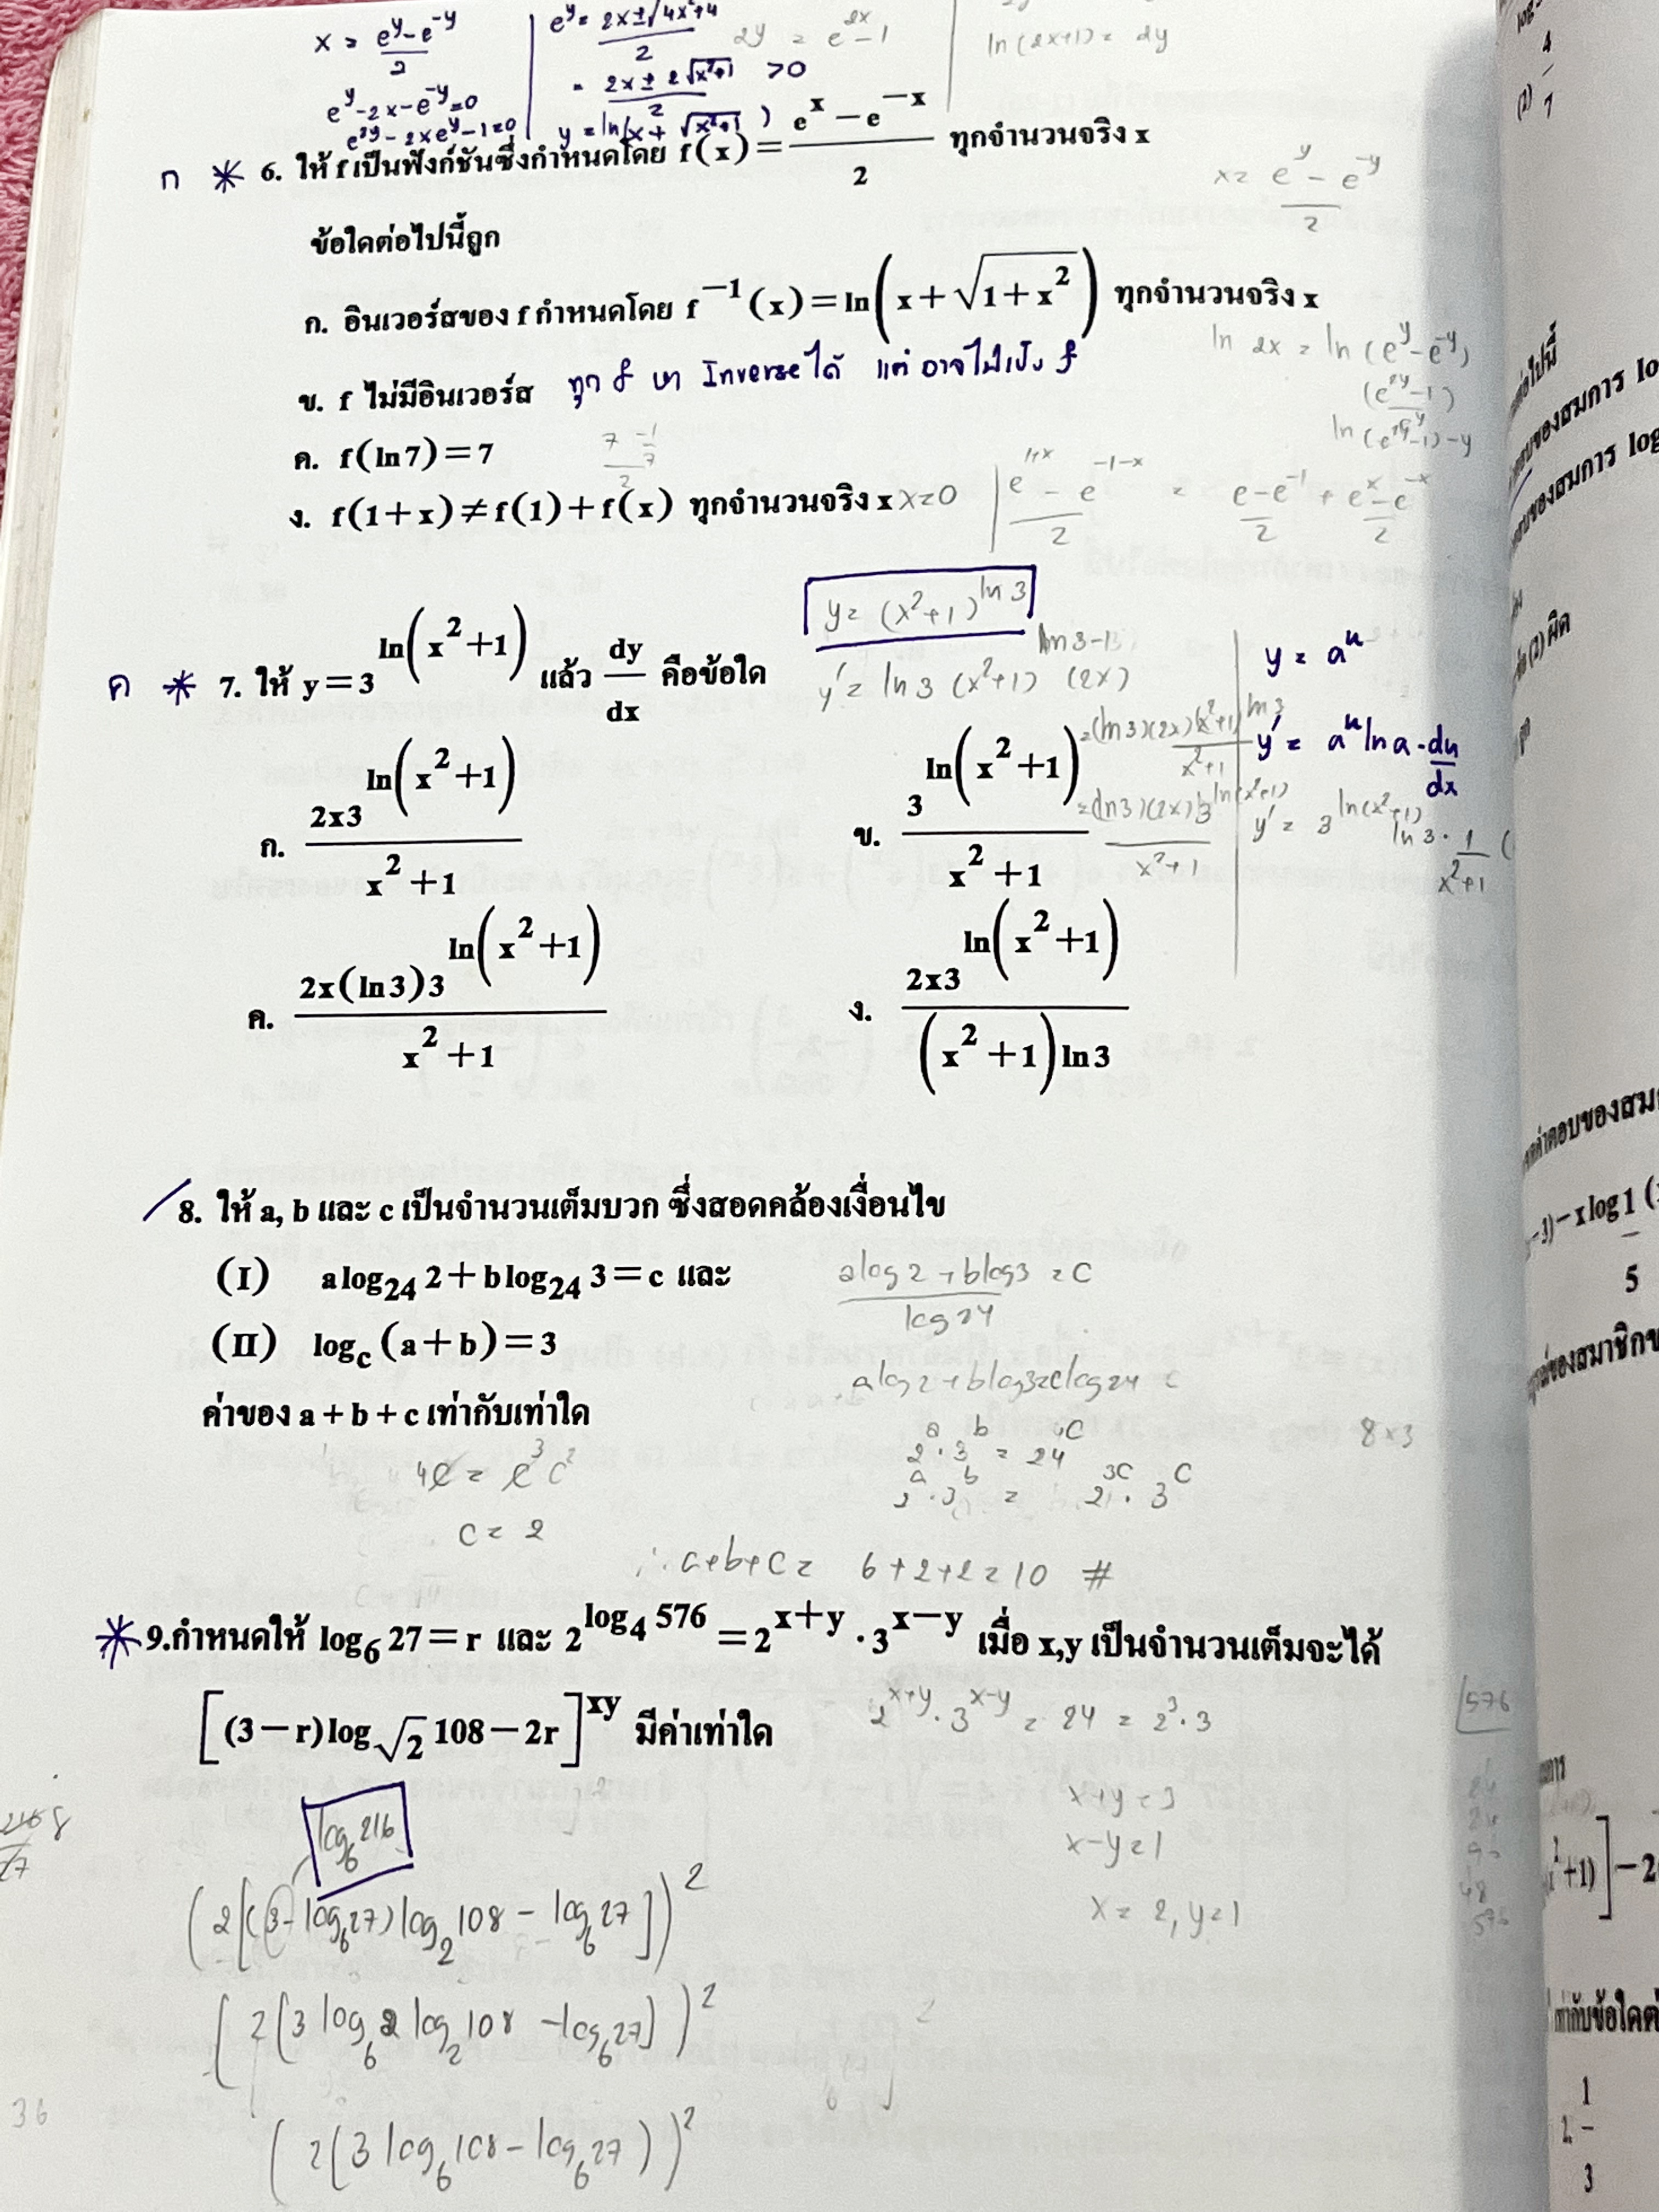 x = (e^y - e^-y)/2
e^y - 2x - e^-y = 0
e^2y - 2xe^y - 1 = 0
e^y = (2x ± √(4x²+4))/2
= (2x ± 2√(x²+1))/2 > 0
y = ln(x + √(x²+1))
2y = e^2x - 1
ln(2x+1) = 2y
ก * 6. ให้ f เป็นฟังก์ชันซึ่งกำหนดโดย f(x) = (e^x - e^-x)/2 ทุกจำนวนจริง x
x = (e^y - e^-y)/2
ข้อใดต่อไปนี้ถูก
ก. อินเวอร์สของ f กำหนดโดย f^-1(x) = ln(x + √(1+x²)) ทุกจำนวนจริง x
ln 2x = ln(e^y - e^-y)
ข. f ไม่มีอินเวอร์ส ทุก f หา Inverse ได้ แต่ อาจไม่เป็น f
ln(e^2y-1)-y
ค. f(ln7) = 7
ง. f(1+x) ≠ f(1)+f(x) ทุกจำนวนจริง x x=0
(e^(1+x) - e^(-1-x))/2 = (e-e^-1)/2 + (e^x-e^-x)/2
ค * 7. ให้ y = 3^ln(x²+1) แล้ว dy/dx คือข้อใด
y = (x²+1)^ln3
y' = ln3 (x²+1)^(ln3-1) (2x)
= (ln3)(2x)(x²+1)^ln3/(x²+1)
= (ln3)(2x)3^ln(x²+1)/(x²+1)
y = a^u
y' = a^u ln a · du/dx
y' = 3^ln(x²+1) ln3 · 1/(x²+1)
ก. 2x3^ln(x²+1)/(x²+1)
ข. 3^ln(x²+1)/(x²+1)
ค. 2x(ln3)3^ln(x²+1)/(x²+1)
ง. 2x3^ln(x²+1)/((x²+1)ln3)
8. ให้ a, b และ c เป็นจำนวนเต็มบวก ซึ่งสอดคล้องเงื่อนไข
(I) a log₂₄ 2 + b log₂₄ 3 = c และ
(alog2 + blog3)/log24 = c
(II) log_c (a+b) = 3
alog2 + blog3 = clog24
ค่าของ a + b + c เท่ากับเท่าใด
2^a · 3^b = 24^c
8×3
2^a · 3^b = 2^3c · 3^c
4c = c³ c²
c = 2
∴ a+b+c = 6+2+2 = 10 #
* 9.กำหนดให้ log₆ 27 = r และ 2^(log₄ 576) = 2^(x+y) · 3^(x-y) เมื่อ x,y เป็นจำนวนเต็มจะได้
[(3-r)log_√2 108 - 2r]^xy มีค่าเท่าใด
2^(x+y) · 3^(x-y) = 24 = 2³·3
576
x+y = 3
x-y = 1
x = 2, y = 1
log₆216
(2[(3-log₆27)log₂108 - log₆27])²
(2(3log₆2 log₂108 - log₆27))²
(2(3log₆108 - log₆27))²
36